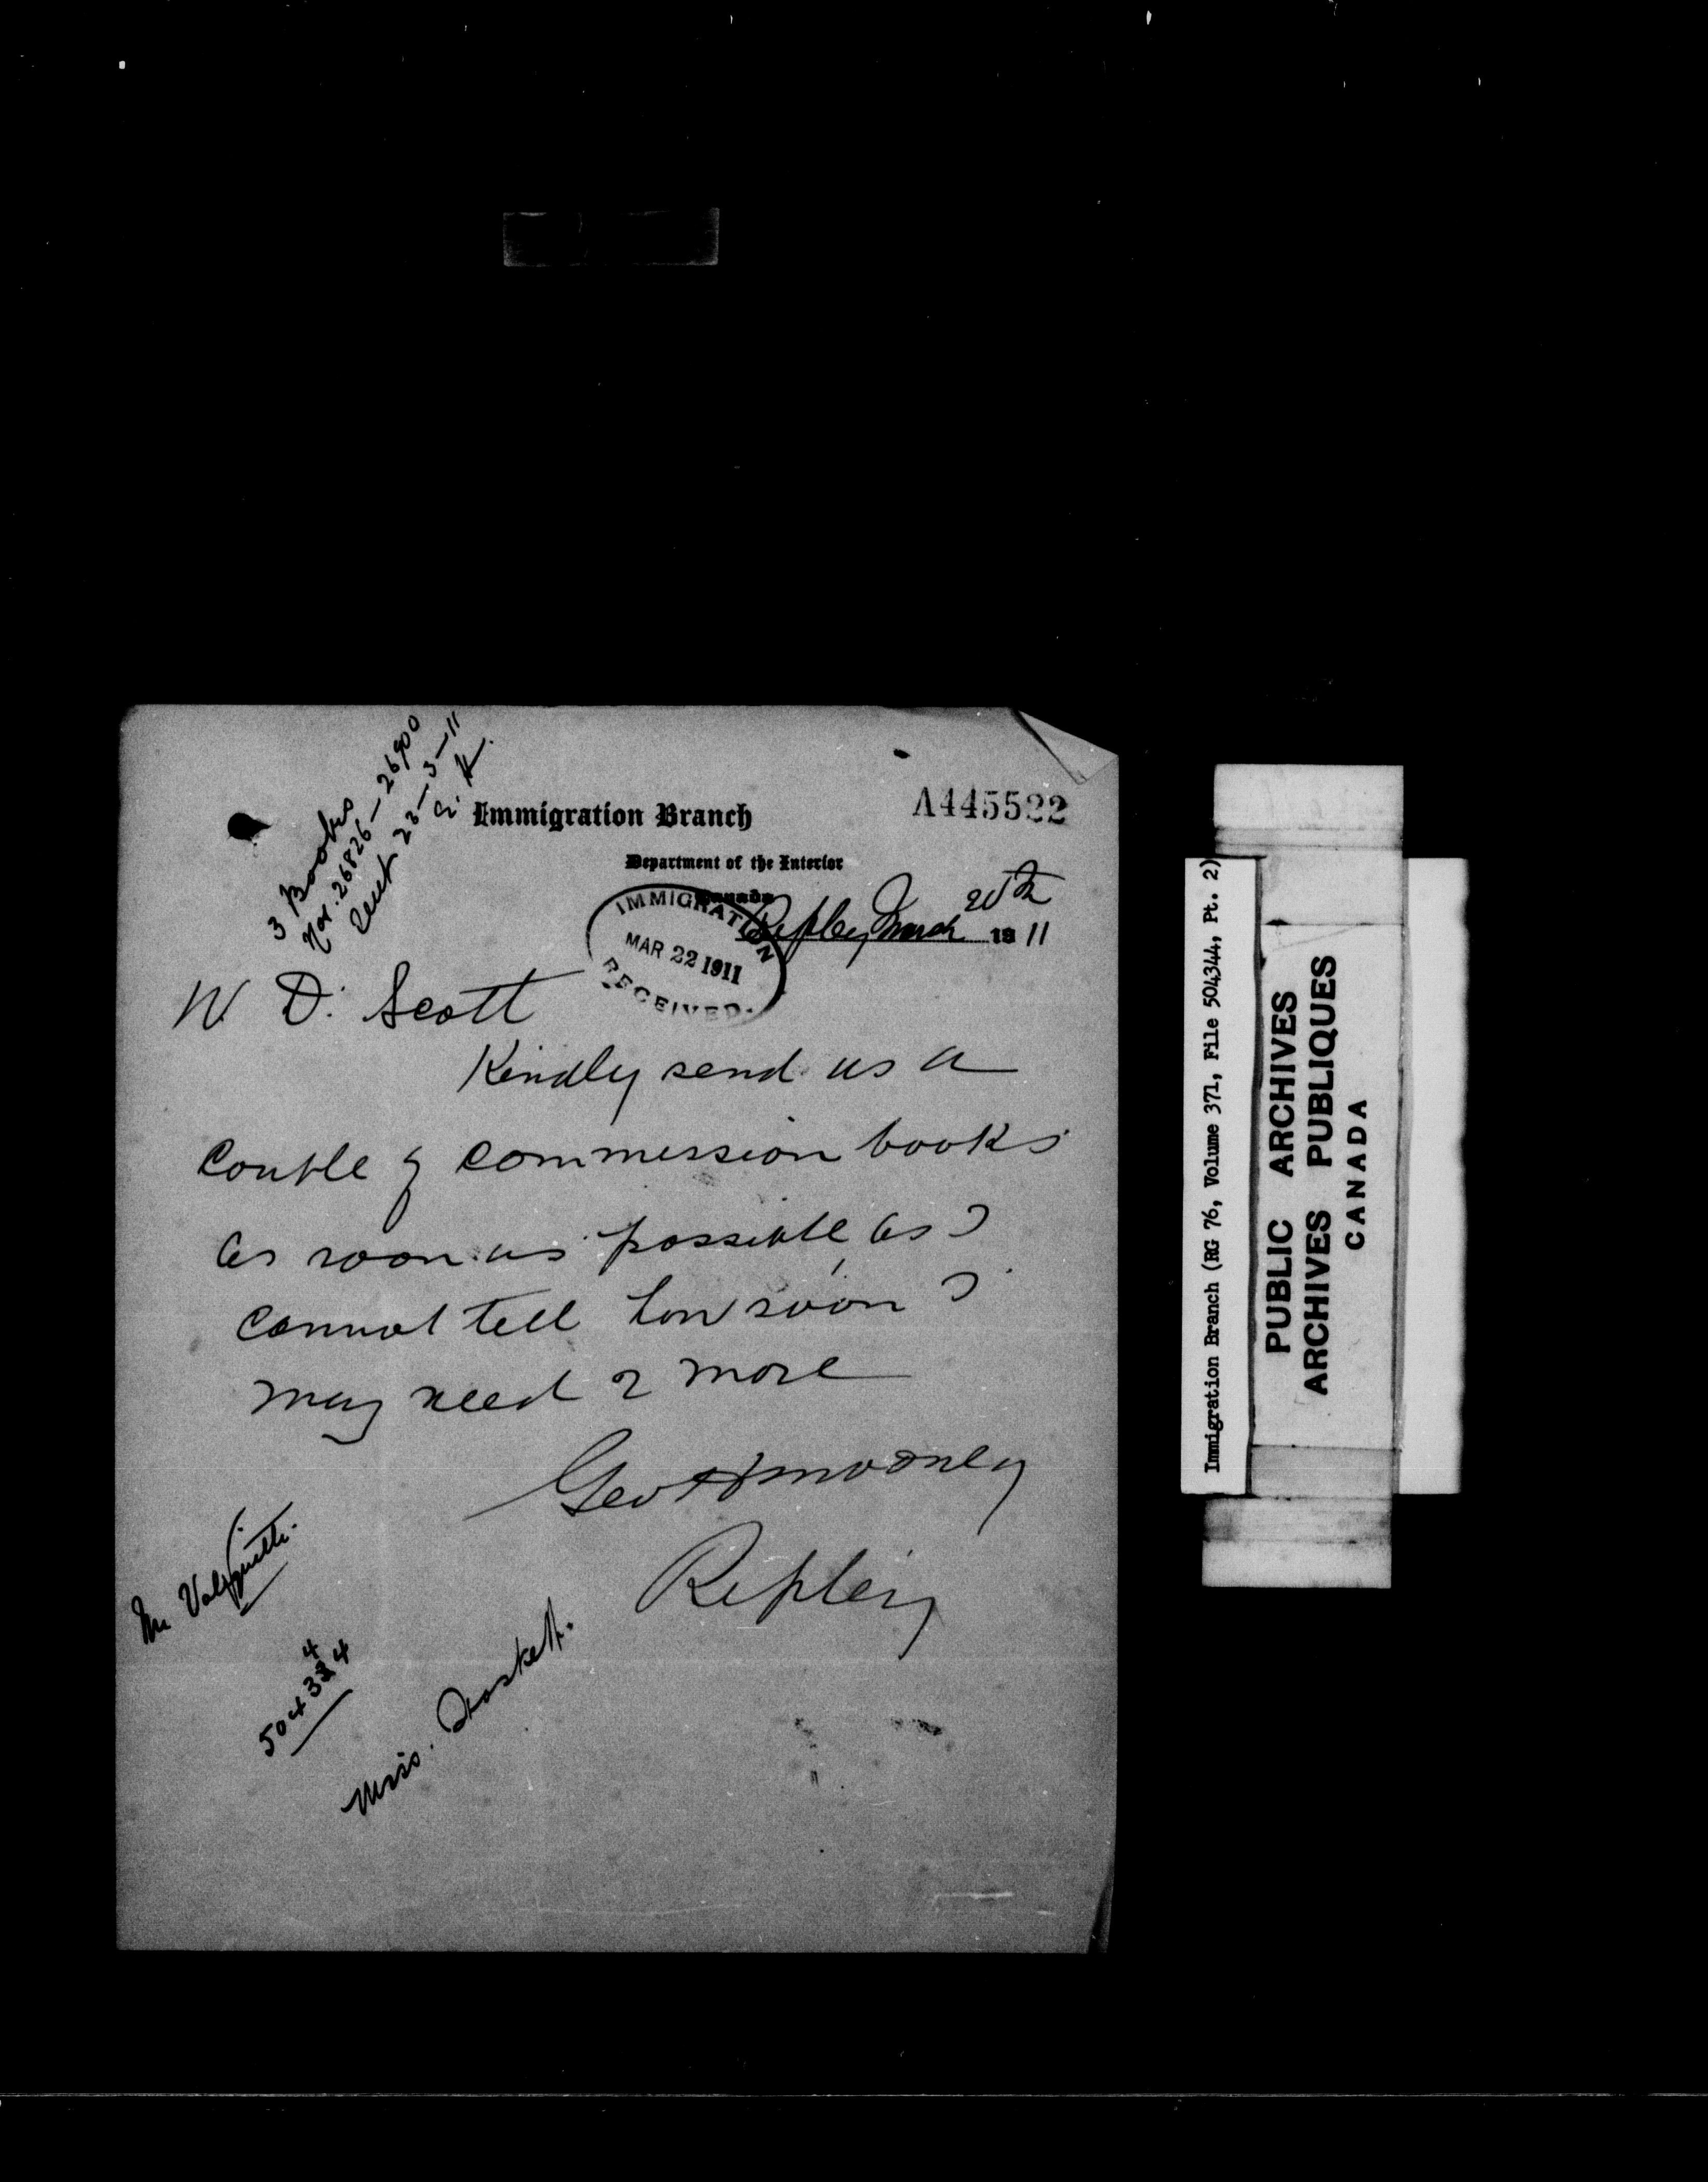 3 Books
Nos. 26826 — 26900
Sent 23-3-11
E. H.
Immigration Branch
A445522
Department of the Interior
Canada
Ripley March 20th 1911
IMMIGRATION
MAR 22 1911
RECEIVED.
W. D. Scott
Kindly send us a
couple of commission books
as soon as possible, as I
cannot tell how soon I
may need 2 more
Geo H Mooney
Ripley
Mr Valiquette.
504384
4
Miss.
Immigration Branch (RG 76, Volume 371, File 504344, Pt. 2)
PUBLIC ARCHIVES
ARCHIVES PUBLIQUES
CANADA